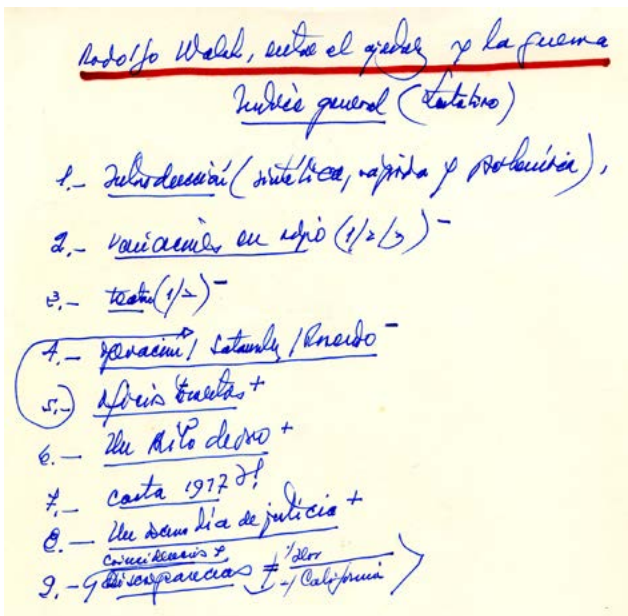 Rodolfo Walsh, entre el ajedrez y la guerra
Índice general (tentativo)
1.- Introducción (sintética, rápida y polémica),
2.- Variaciones en rojo (1/2/3) -
3.- teatro (1/2) -
4.- / / Rosendo -
5.- +
6.- Un kilo de oro +
7.- Carta 1977
8.- Un oscuro día de justicia +
Coincidencias +
9.- discrepancias
California